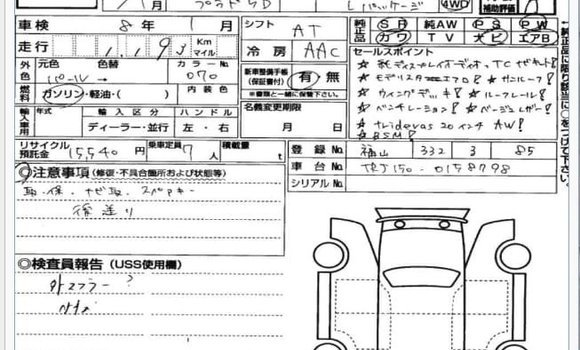 プラド5D
Lパッケージ
4WD
補助評価
A
車検 8年 1月
シフト AT
純正品 SR 純AW PS PW
カワ TV ナビ エアB
走行 Km マイル
冷房 AAC
外色 元色 色替 カラーNo. 070
新車整備手帳(保証書付) 有・無
★書類と一緒に保管して下さい。
燃料 ガソリン・軽油・( ) 内装色
名義変更期限
月 日
輸入車用 年式 輸入区分 ハンドル
ディーラー・並行 左・右
セールスポイント
☆モデリスタエアロ! ☆サンルーフ!
☆ウイングデッキ! ☆ルーフレール!
☆ベンチレーション! ☆ベージュレザー!
20インチ AW!
☆BSM!
←純正品に限り該当に○をつけて下さい。
リサイクル預託金 15,540円 乗車定員 7人 積載量 t
登録No. 福山 332 85
車台No. TRJ150-0158798
シリアルNo.
注意事項 (修復・不具合箇所および状態等)
取・保・ナビ取・スペアキー
後送り
検査員報告 (USS使用欄)
外マフラー ?